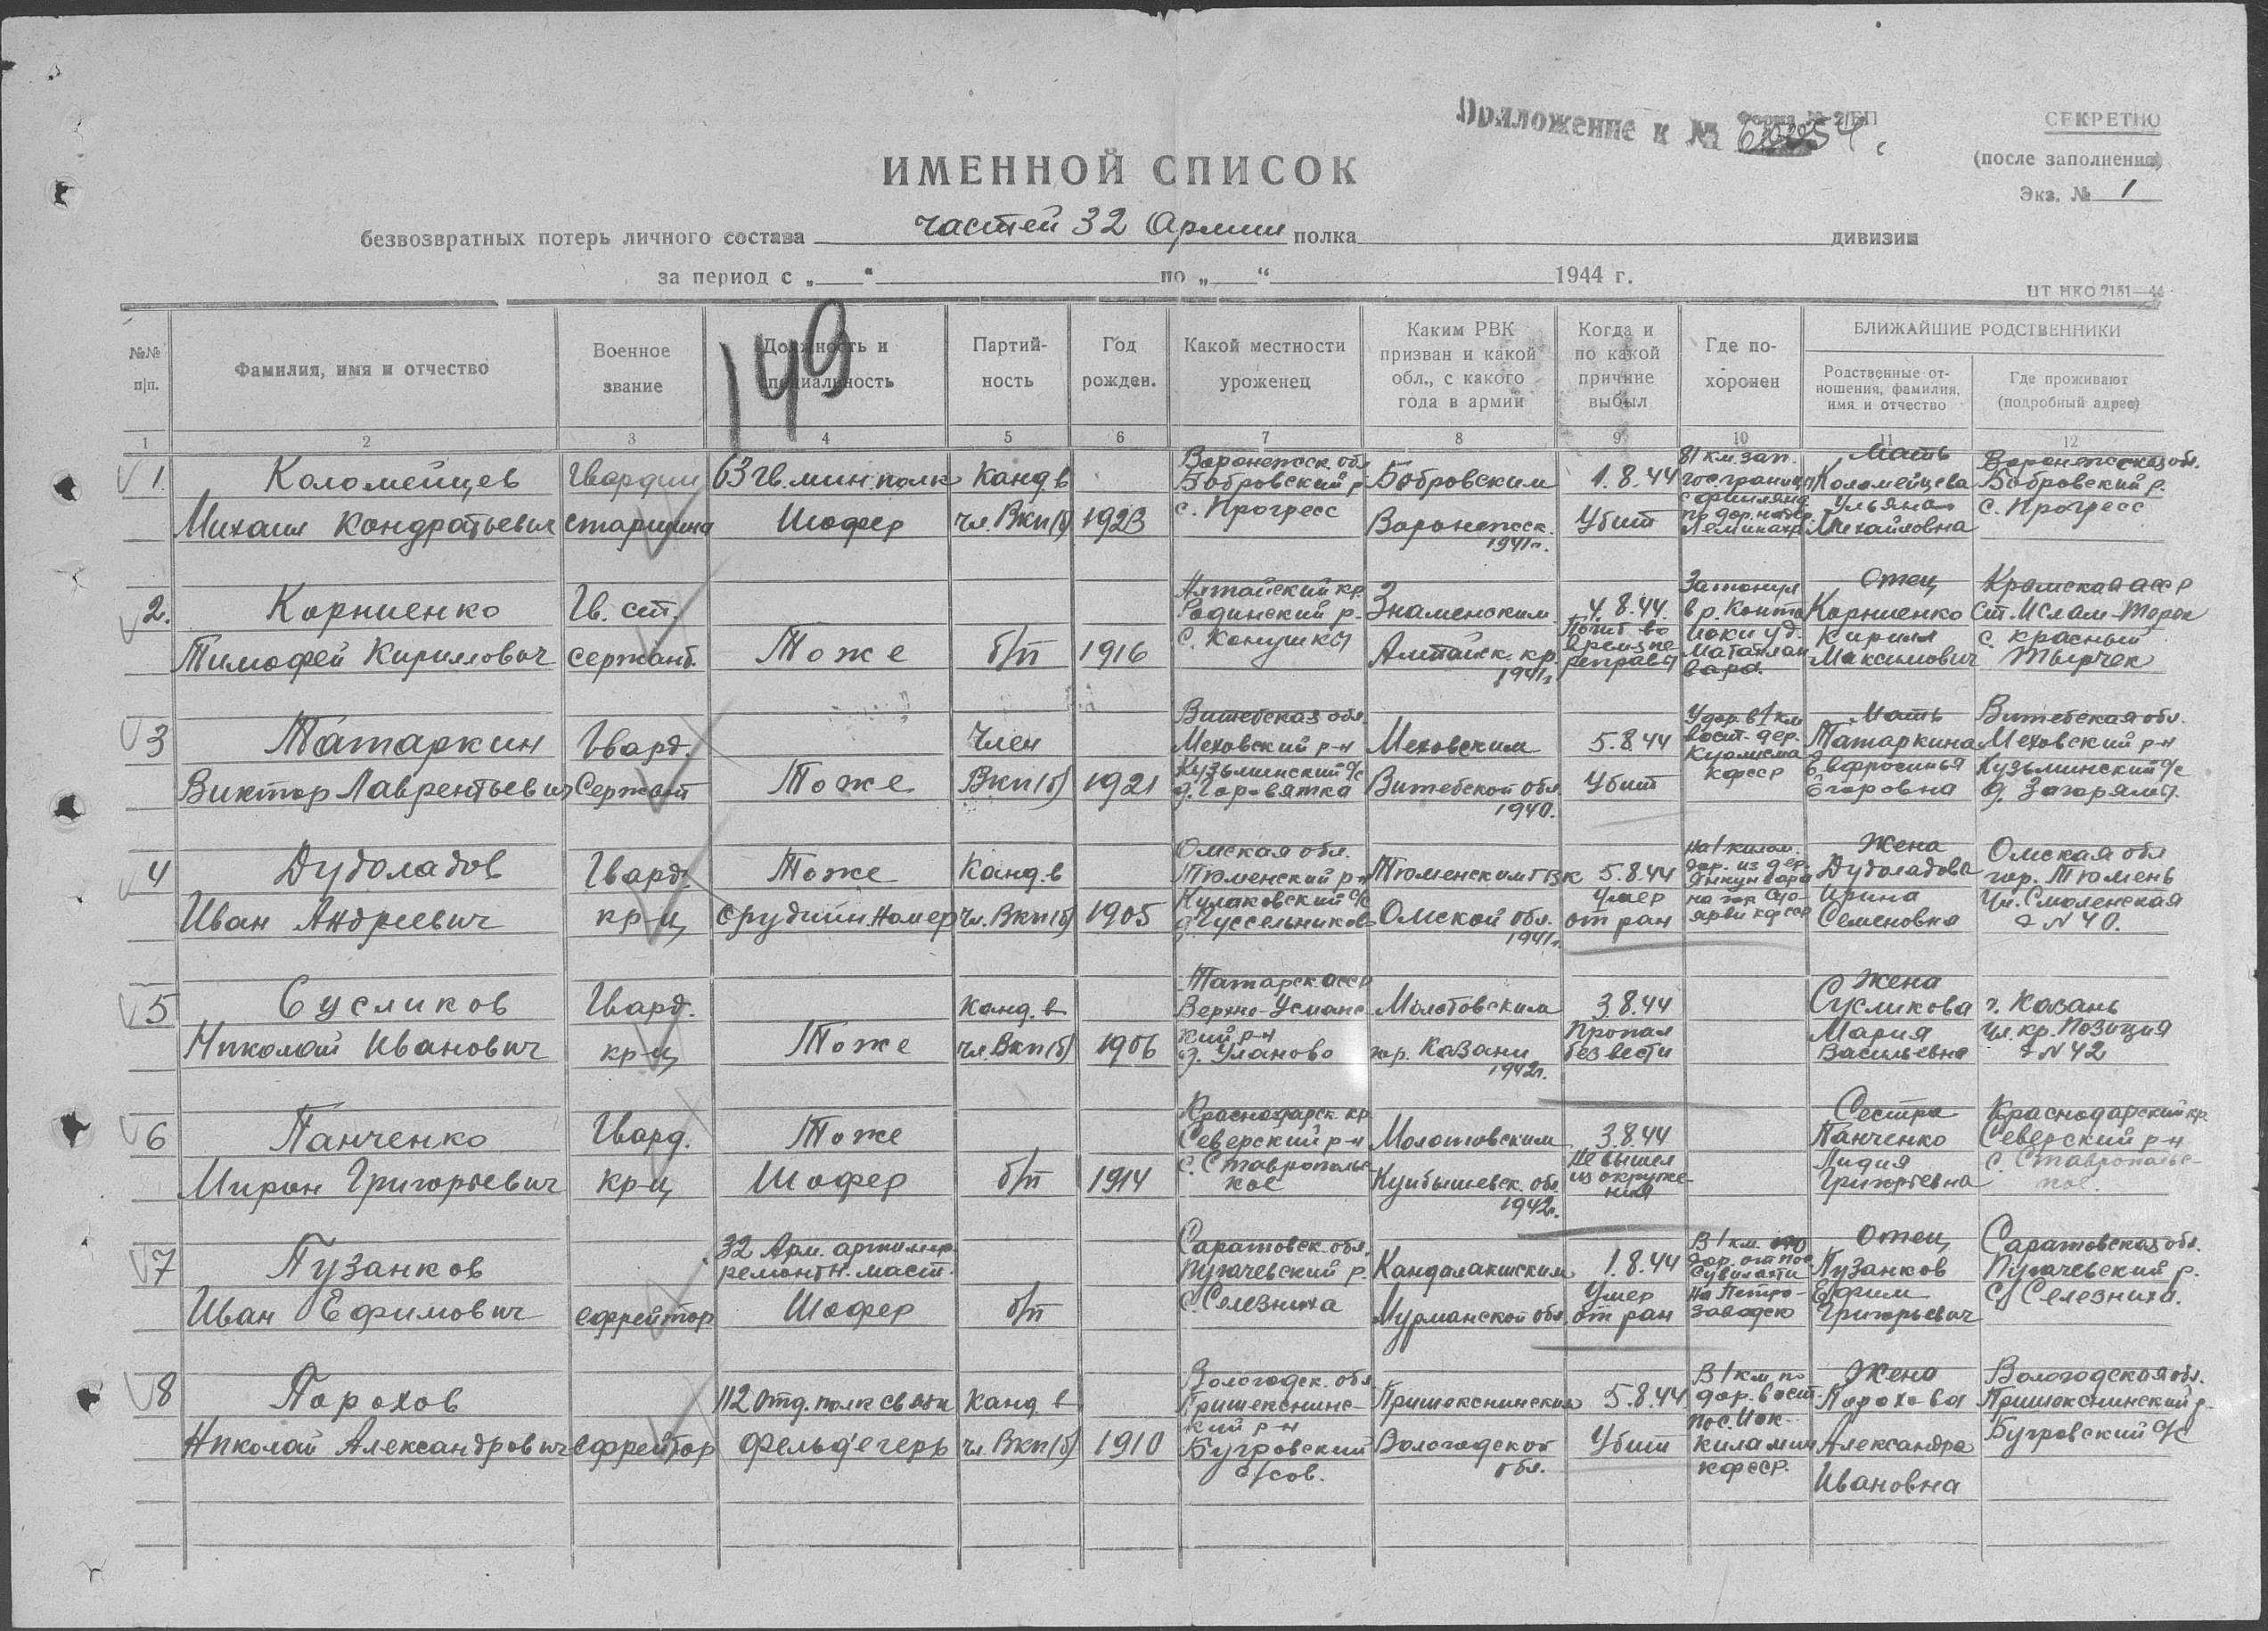 Приложение к №
Форма № 2/БП
СЕКРЕТНО
(после заполнения)
Экз. № 1
ИМЕННОЙ СПИСОК
безвозвратных потерь личного состава частей 32 Армии полка дивизии
за период с „ “ по „ “ 1944 г.
149
№№ п/п.
Фамилия, имя и отчество
Военное звание
Должность и специальность
Партий- ность
Год рожден.
Какой местности уроженец
Каким РВК призван и какой обл., с какого года в армии
Когда и по какой причине выбыл
Где по- хоронен
БЛИЖАЙШИЕ РОДСТВЕННИКИ
Родственные от- ношения, фамилия, имя и отчество
Где проживают (подробный адрес)
1 2 3 4 5 6 7 8 9 10 11 12
1.
Коломейцев
Михаил Кондратьевич
Гвардии
старшина
63 гв. мин. полк
Шофер
Канд. в
чл. ВКП(б)
1923
Воронежск. обл
Бобровский р
с. Прогресс
Бобровским
Воронежск.
1941г.
1.8.44
Убит
81 км. зап.
госграницы
Мать
Коломейцева
Ульяна
Михайловна
Воронежская обл.
Бобровский р.
с. Прогресс
2.
Корниенко
Тимофей Кириллович
Гв. ст.
сержант.
Тоже
б/п
1916
Алтайский кр
Родинский р.
Знаменским
Алтайск. кр.
1941г.
4.8.44
Погиб во
время пе
реправы
Затонул
в р.
Отец
Корниенко
Кирилл
Максимович
Крымская асср
ст. Ислам-Терек
с. Красный
3
Татаркин
Виктор Лаврентьевич
Гвард.
Сержант
Тоже
Член
ВКП(б)
1921
Витебская обл
Меховский р-н
Кузьминский с/с
Меховским
Витебской обл
1940.
5.8.44
Убит
У дор. в 1 км
вост. дер.
Куолисма
КФССР
Мать
Татаркина
Ефросинья
Егоровна
Витебская обл.
Меховский р-н
Кузьминский с/с
4
Дудоладов
Иван Андреевич
Гвард.
кр-ц
Тоже
орудийн. номер
Канд. в
чл. ВКП(б)
1905
Омская обл.
Тюменский р-н
Кулаковский с/с
Тюменским ГВК
Омской обл.
1941г.
5.8.44
Умер
от ран
Жена
Дудоладова
Ирина
Семеновна
Омская обл
гор. Тюмень
Ул. Смоленская
д N 40.
5
Сусликов
Николай Иванович
Гвард.
кр-ц
Тоже
Канд. в
чл. ВКП(б)
1906
Татарск асср
кий р-н
д. Уланово
Молотовским
гор. Казани
1942г.
3.8.44
Пропал
без вести
Жена
Сусликова
Мария
Васильевна
г. Казань
Ул. кр. Позиция
д N 42
6
Панченко
Мирон Григорьевич
Гвард.
кр-ц
Тоже
Шофер
б/п
1914
Краснодарск. кр
Северский р-н
с. Ставрополь-
кое
Молотовским
Куйбышевск. обл
1942г.
3.8.44
Не вышел
из окруже-
ния
Сестра
Панченко
Лидия
Григорьевна
Краснодарский кр.
Северский р-н
с. Ставропольс-
кое.
7
Пузанков
Иван Ефимович
ефрейтор
32 Арм. артиллер.
ремонтн. маст.
Шофер
б/п
Саратовск. обл.
Пугачевский р.
с. Селезниха
Кандалакшским
Мурманской обл
1.8.44
Умер
от ран
В 1 км. по
дор. от пос
Сувилахти
на Петро-
заводск
Отец
Пузанков
Ефим
Григорьевич
Саратовская обл.
Пугачевский р.
с. Селезниха.
8
Порохов
Николай Александрович
ефрейтор
112 отд. полк связи
фельд'егерь
Канд. в
чл. ВКП(б)
1910
Вологодск. обл
Пришекснинс-
кий р-н
Бугровский
с/сов.
Пришекснинским
Вологодской
обл.
5.8.44
Убит
В 1 км по
дор. вост.
КФССР.
Жена
Порохова
Александра
Ивановна
Вологодская обл.
Пришекснинский р.
Бугровский с/с